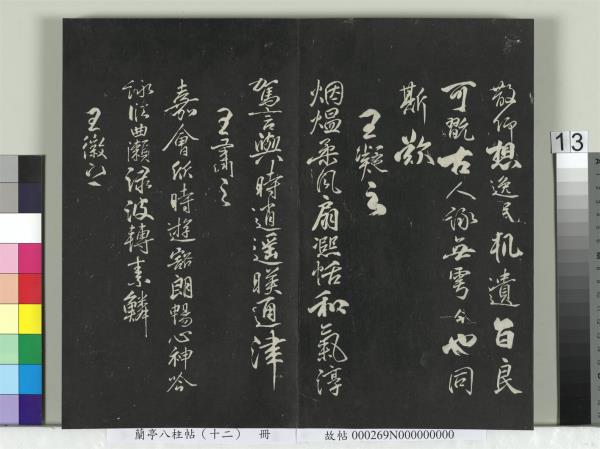 散仰想逸民軌遺音良
可翫古人詠無雩今也同
斯歡
王凝之
烟熅柔風扇熙恬和氣淳
駕言興時逍遙映通津
王肅之
嘉會欣時遊豁朗暢心神吟
詠臨曲瀨淥波轉素鱗
王徽之
13
蘭亭八柱帖(十二) 冊
故帖 000269N000000000